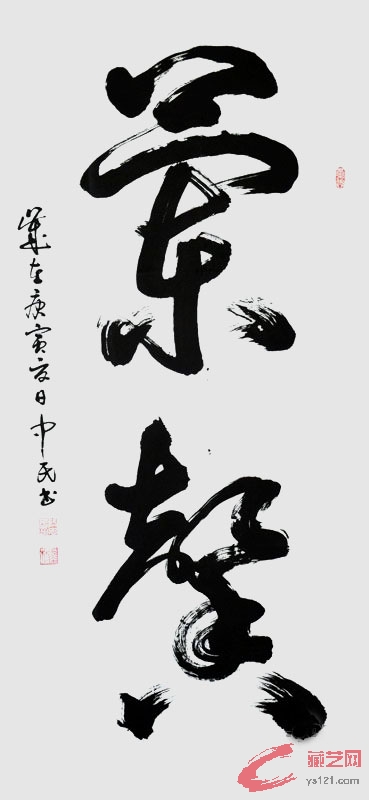 蘭馨
歲在庚寅夏日中民書
藏艺网
ys121.com